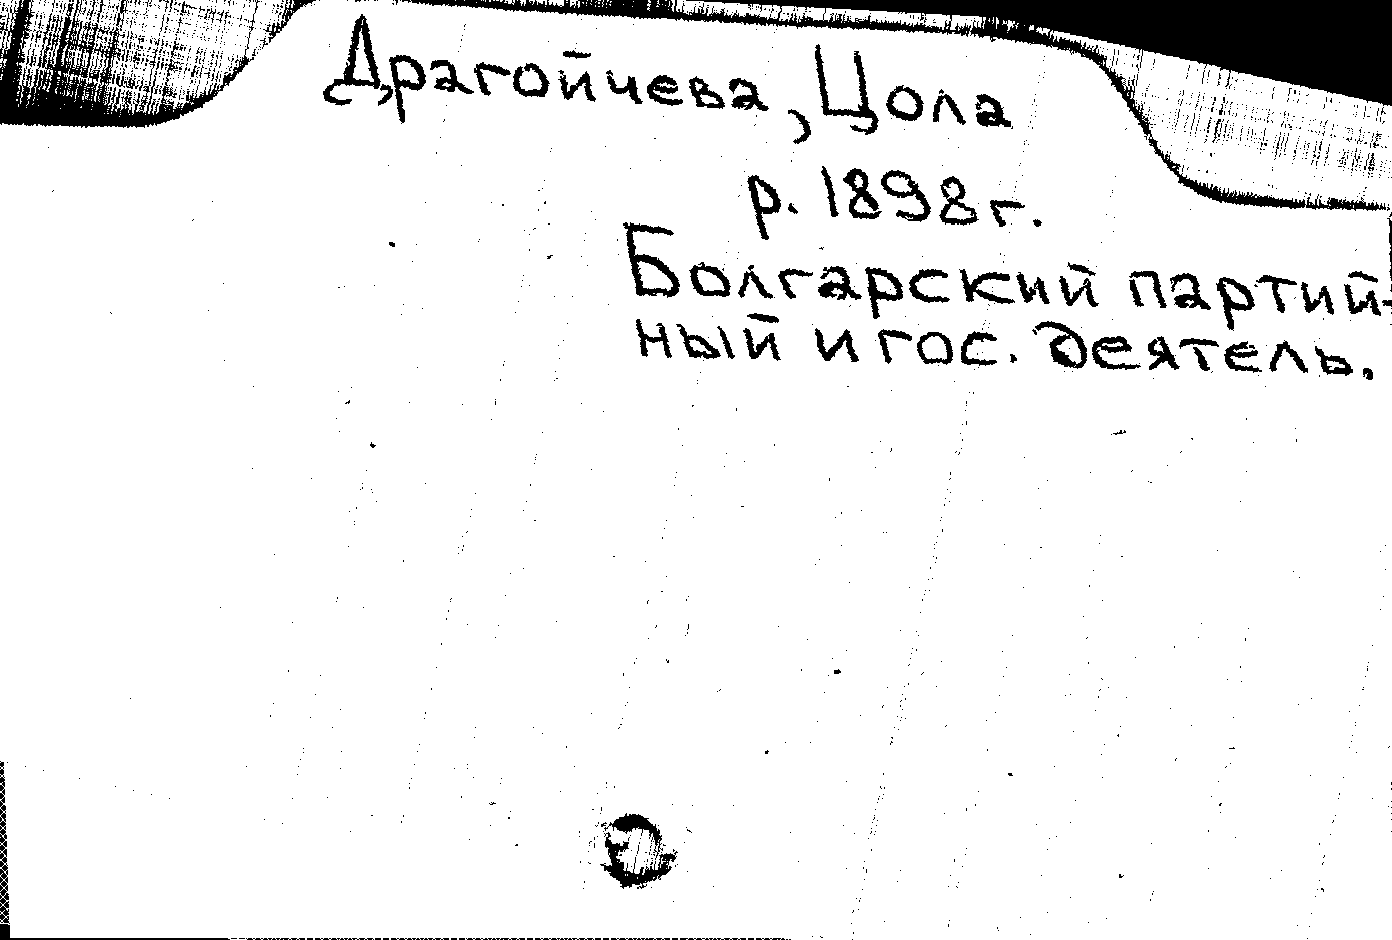 Драгойчева, Цола
р. 1898 г.
Болгарский партий-
ный и гос. деятель.